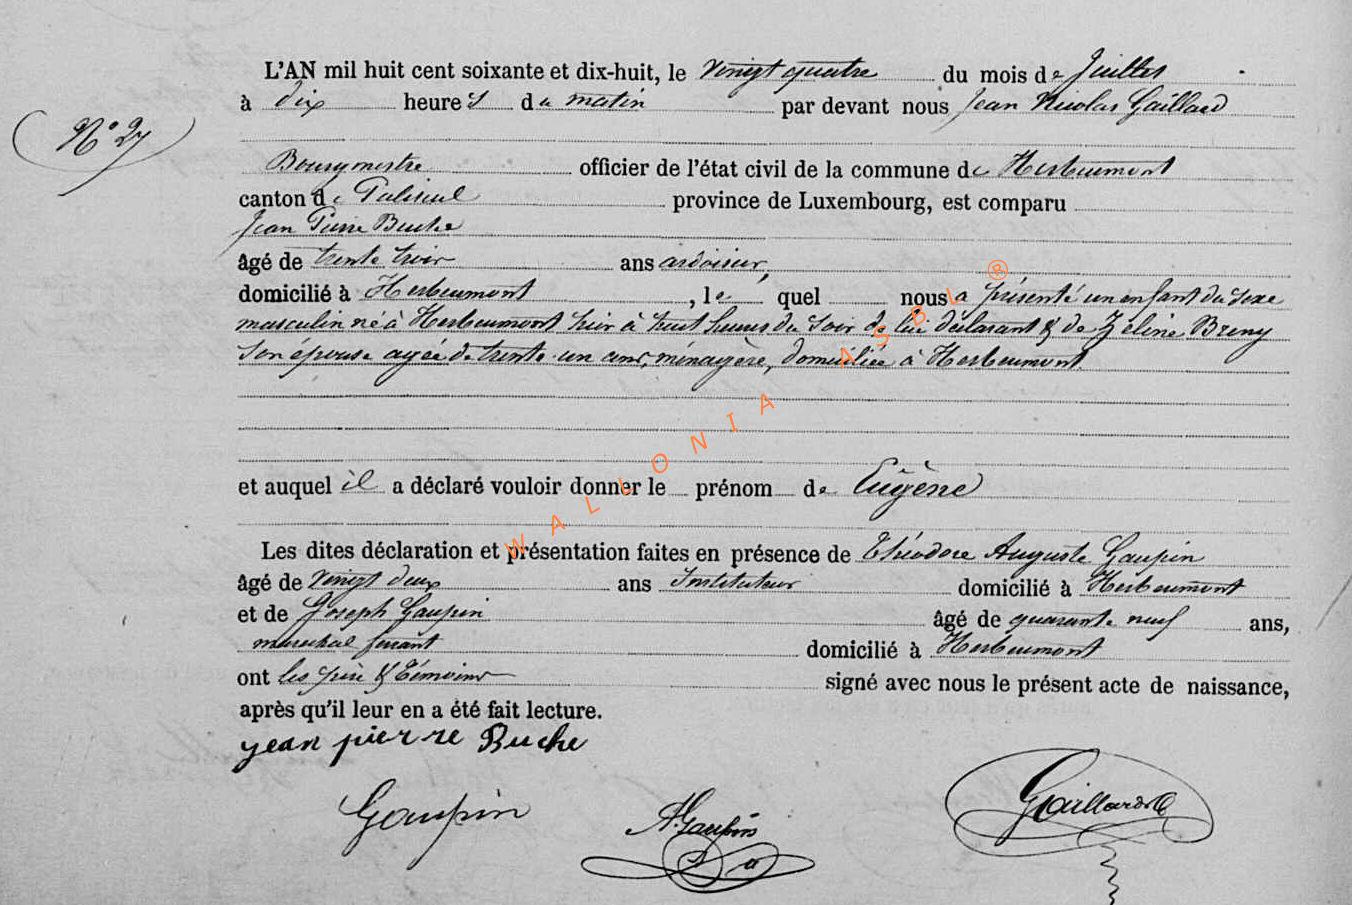 L'AN mil huit cent soixante et dix-huit, le vingt quatre du mois de Juillet
à dix heures du matin par devant nous Jean Nicolas Gaillard
N° 27
Bourgmestre officier de l'état civil de la commune de Herbeumont
canton de Paliseul province de Luxembourg, est comparu
Jean Pierre Buche
âgé de trente trois ans ardoisier,
domicilié à Herbeumont, le quel nous a présenté un enfant du sexe
masculin né à Herbeumont hier à huit heures du soir de lui déclarant & de Zéline Breny
son épouse agée de trente-un ans, ménagère, domiciliée à Herbeumont.
et auquel il a déclaré vouloir donner le prénom de Eugène
Les dites déclaration et présentation faites en présence de Théodore Auguste Gaupin
âgé de vingt deux ans Instituteur domicilié à Herbeumont
et de Joseph Gaupin âgé de quarante neuf ans,
marechal ferrant domicilié à Herbeumont
ont les père & témoins signé avec nous le présent acte de naissance,
après qu'il leur en a été fait lecture.
jean pierre Buche
Gaupin A. Gaupin Gaillard
WALLONIA ASBL ®